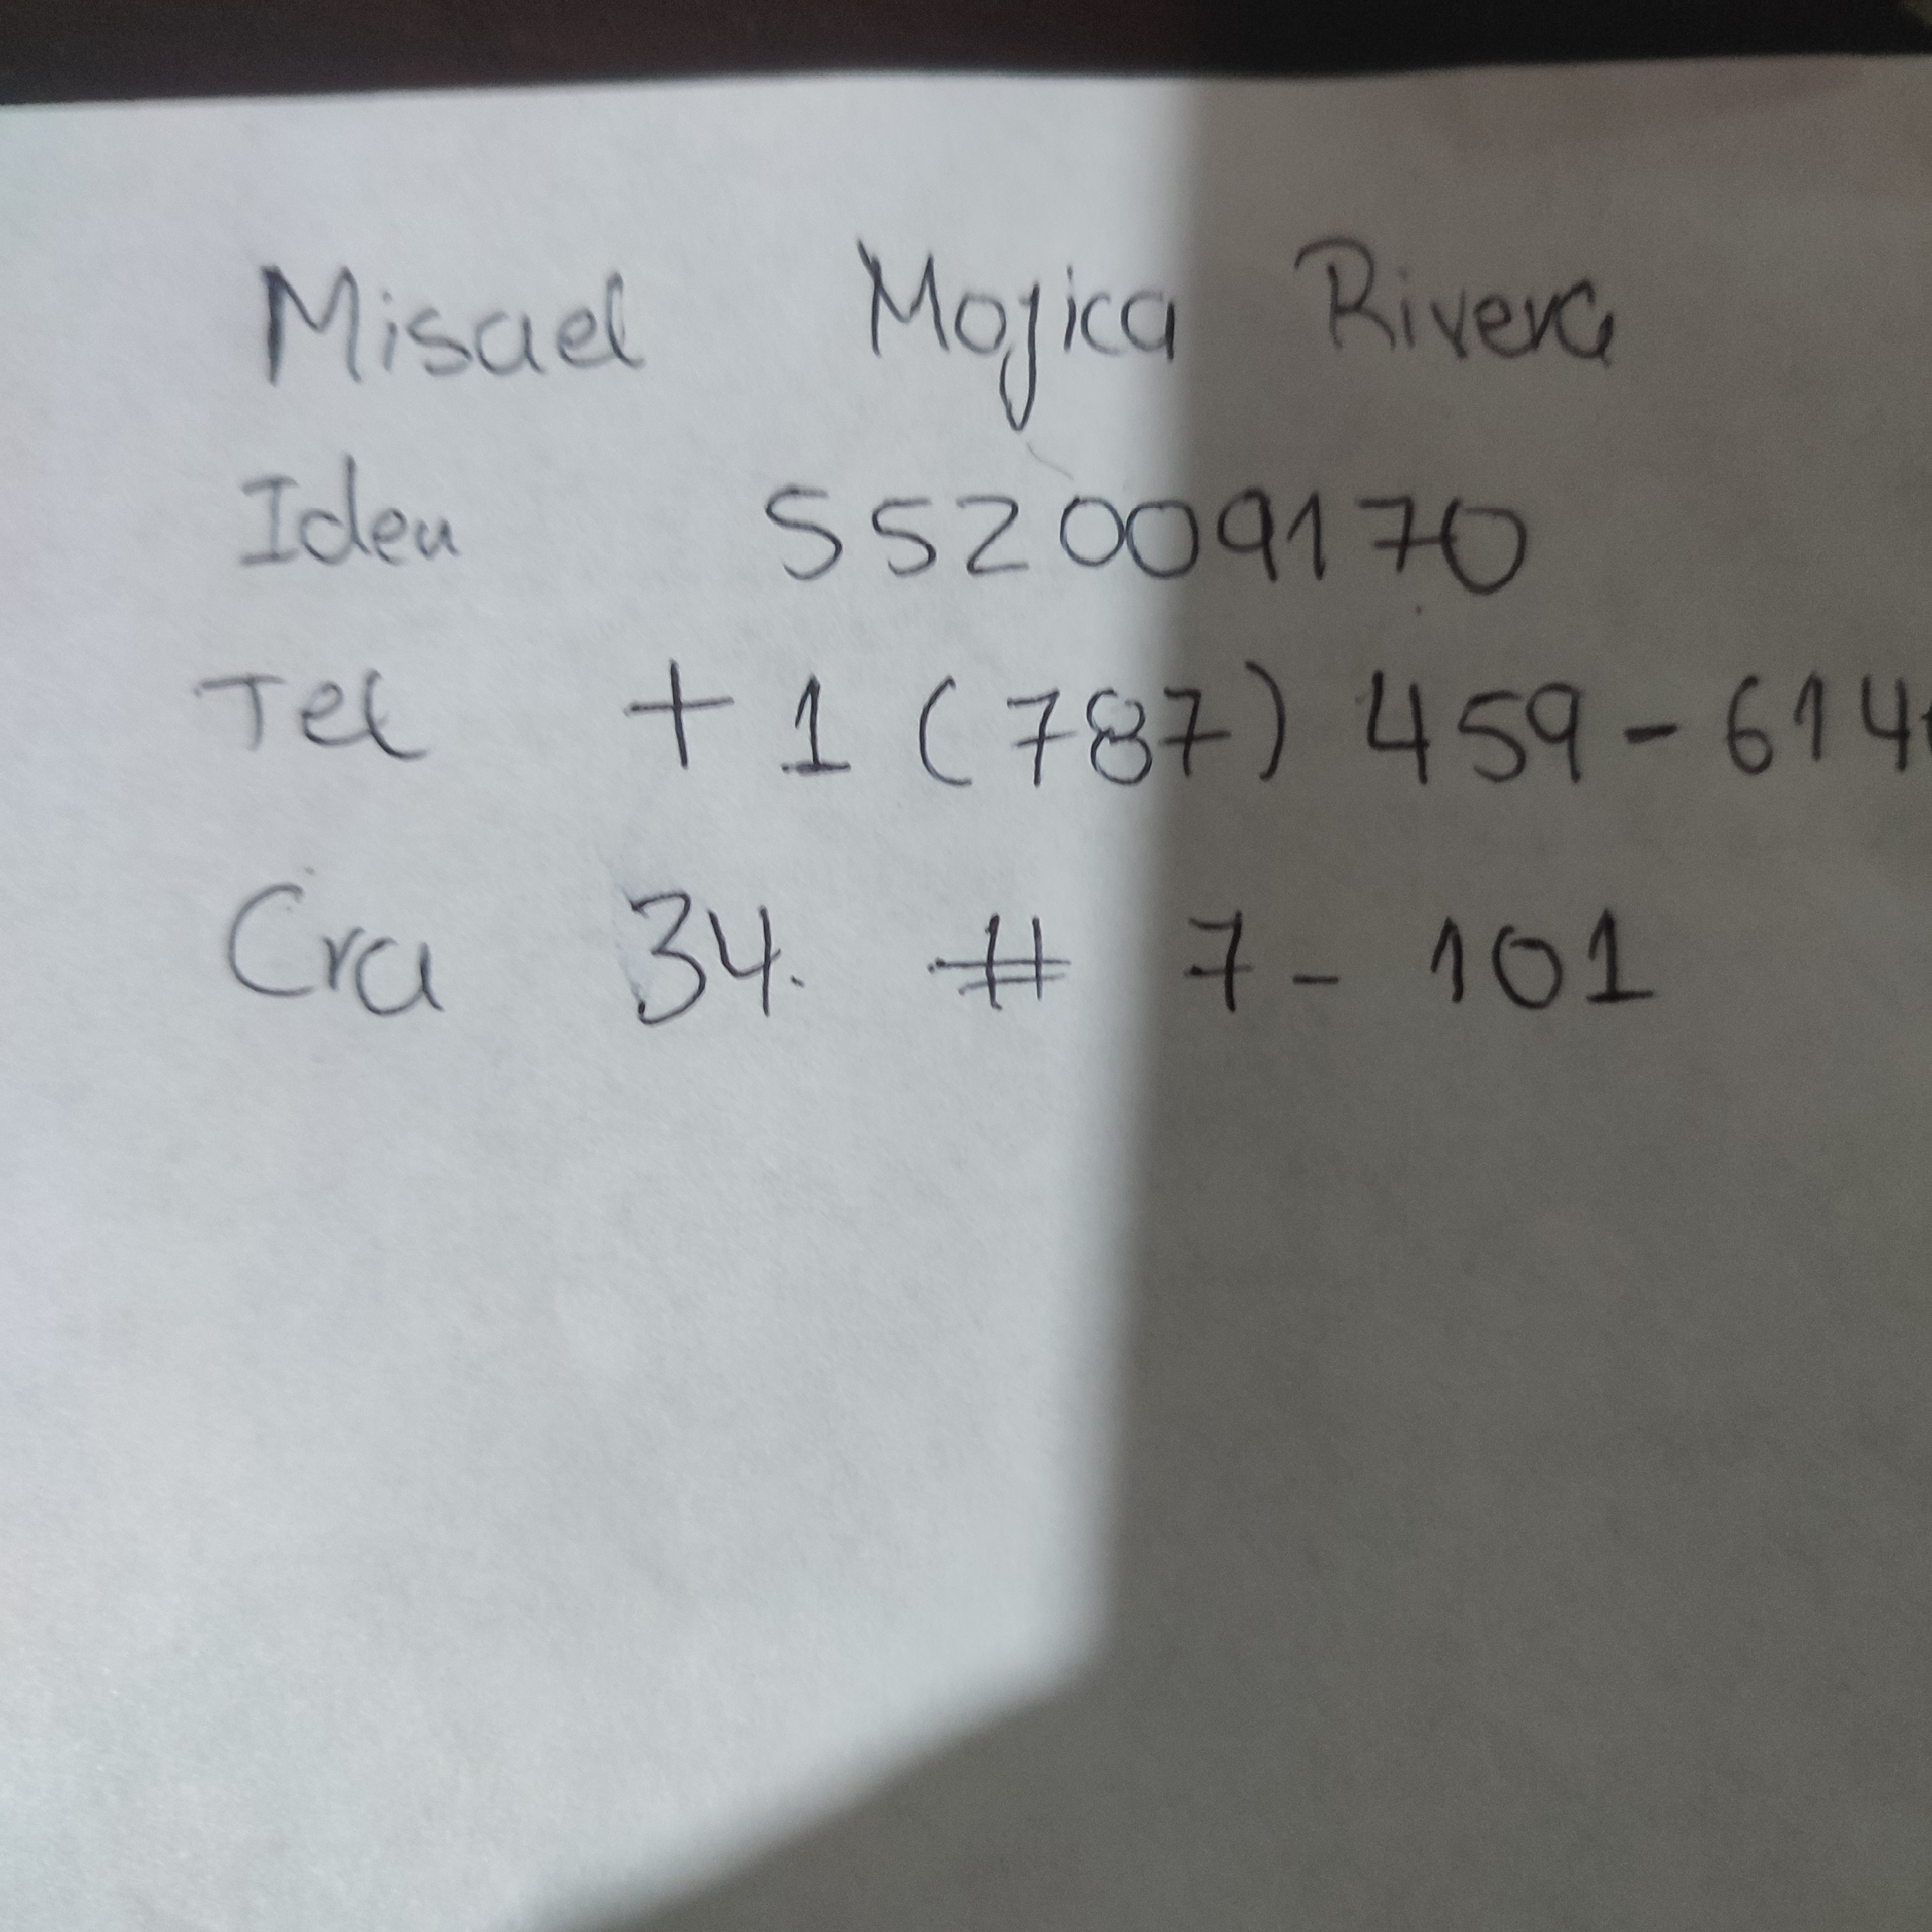 Misael Mojica Rivera
Iden 552009170
Tel +1 (787) 459-614
Cra 34. # 7-101